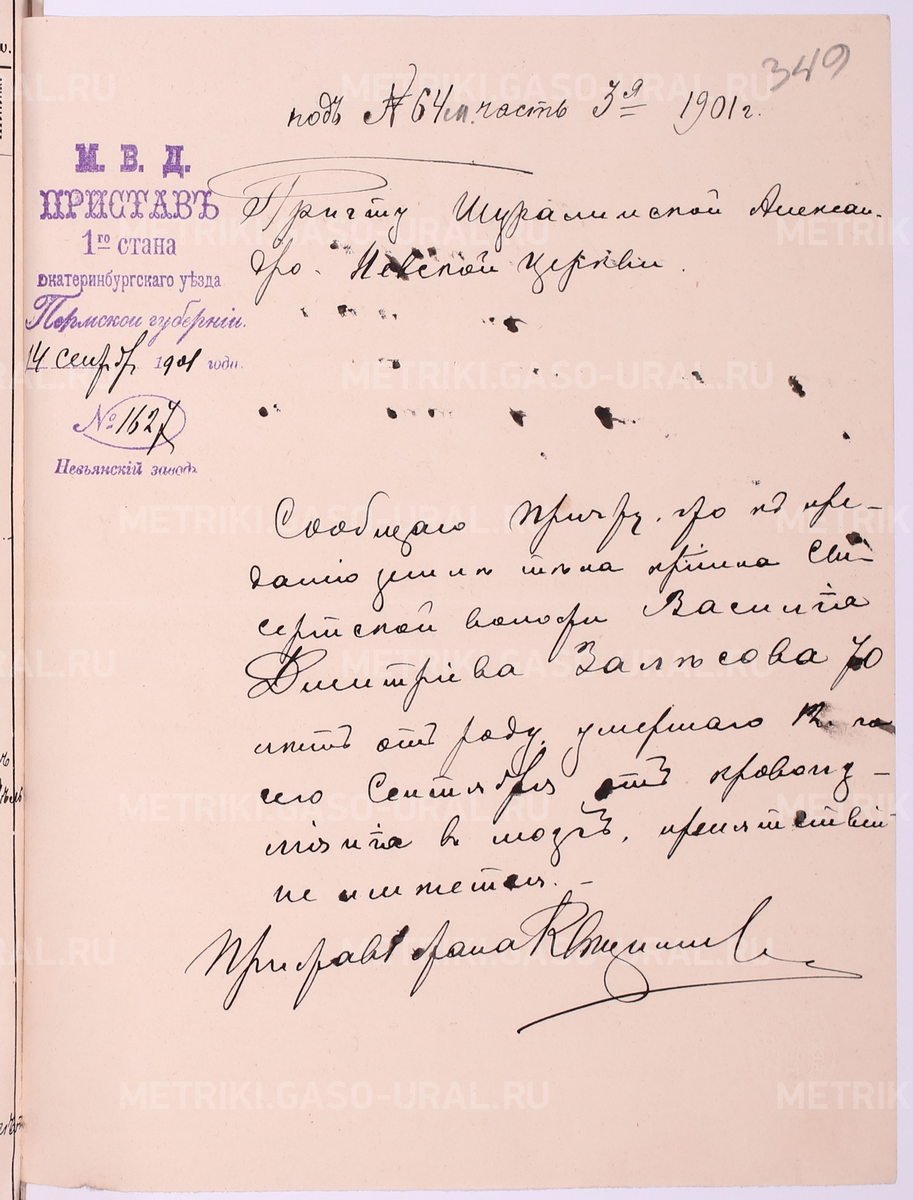 349
подъ № 64 м. часть 3я 1901 г.
М. В. Д.
ПРИСТАВЪ
1го стана
Екатеринбургскаго уѣзда
Пермской губерніи.
14 сентбр 1901 года.
№ 1627
Невьянскій заводъ
Причту Шуралинской Алексан-
дро-Невской церкви.
Сообщаю причту, что къ пре-
данію землѣ тѣла крнина Сы-
сертской волости Василія
Дмитріева Залѣсова 70
лѣтъ отъ роду, умершаго 12 го
сего Сентября отъ кровоиз-
ліянія въ мозгъ, препятствій
не имѣется.-
Приставъ стана
METRIKI.GASO-URAL.RU